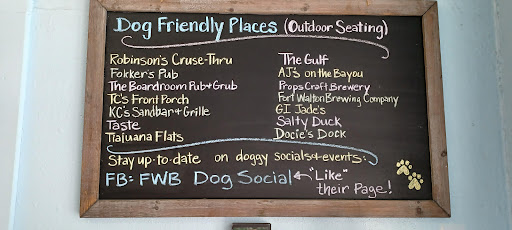 Dog Friendly Places (Outdoor Seating)
Robinson's Cruse-Thru
Fokker's Pub
The Boardroom Pub + Grub
TC's Front Porch
KC's Sandbar + Grille
Taste
Tiajuana Flats
The Gulf
AJ's on the Bayou
Props Craft Brewery
Fort Walton Brewing Company
GI Jade's
Salty Duck
Docie's Dock
Stay up-to-date on doggy socials + events:
FB: FWB Dog Social ← "Like"
their Page!